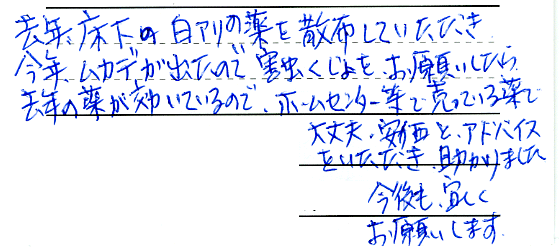 去年、床下の白アリの薬を散布していただき
今年、ムカデが出たので害虫くじょをお願いしたら
去年の薬が効いているので、ホームセンター等で売っている薬で
大丈夫、安価と、アドバイス
をいただき、助かりました
今後も、宜しく
お願いします。